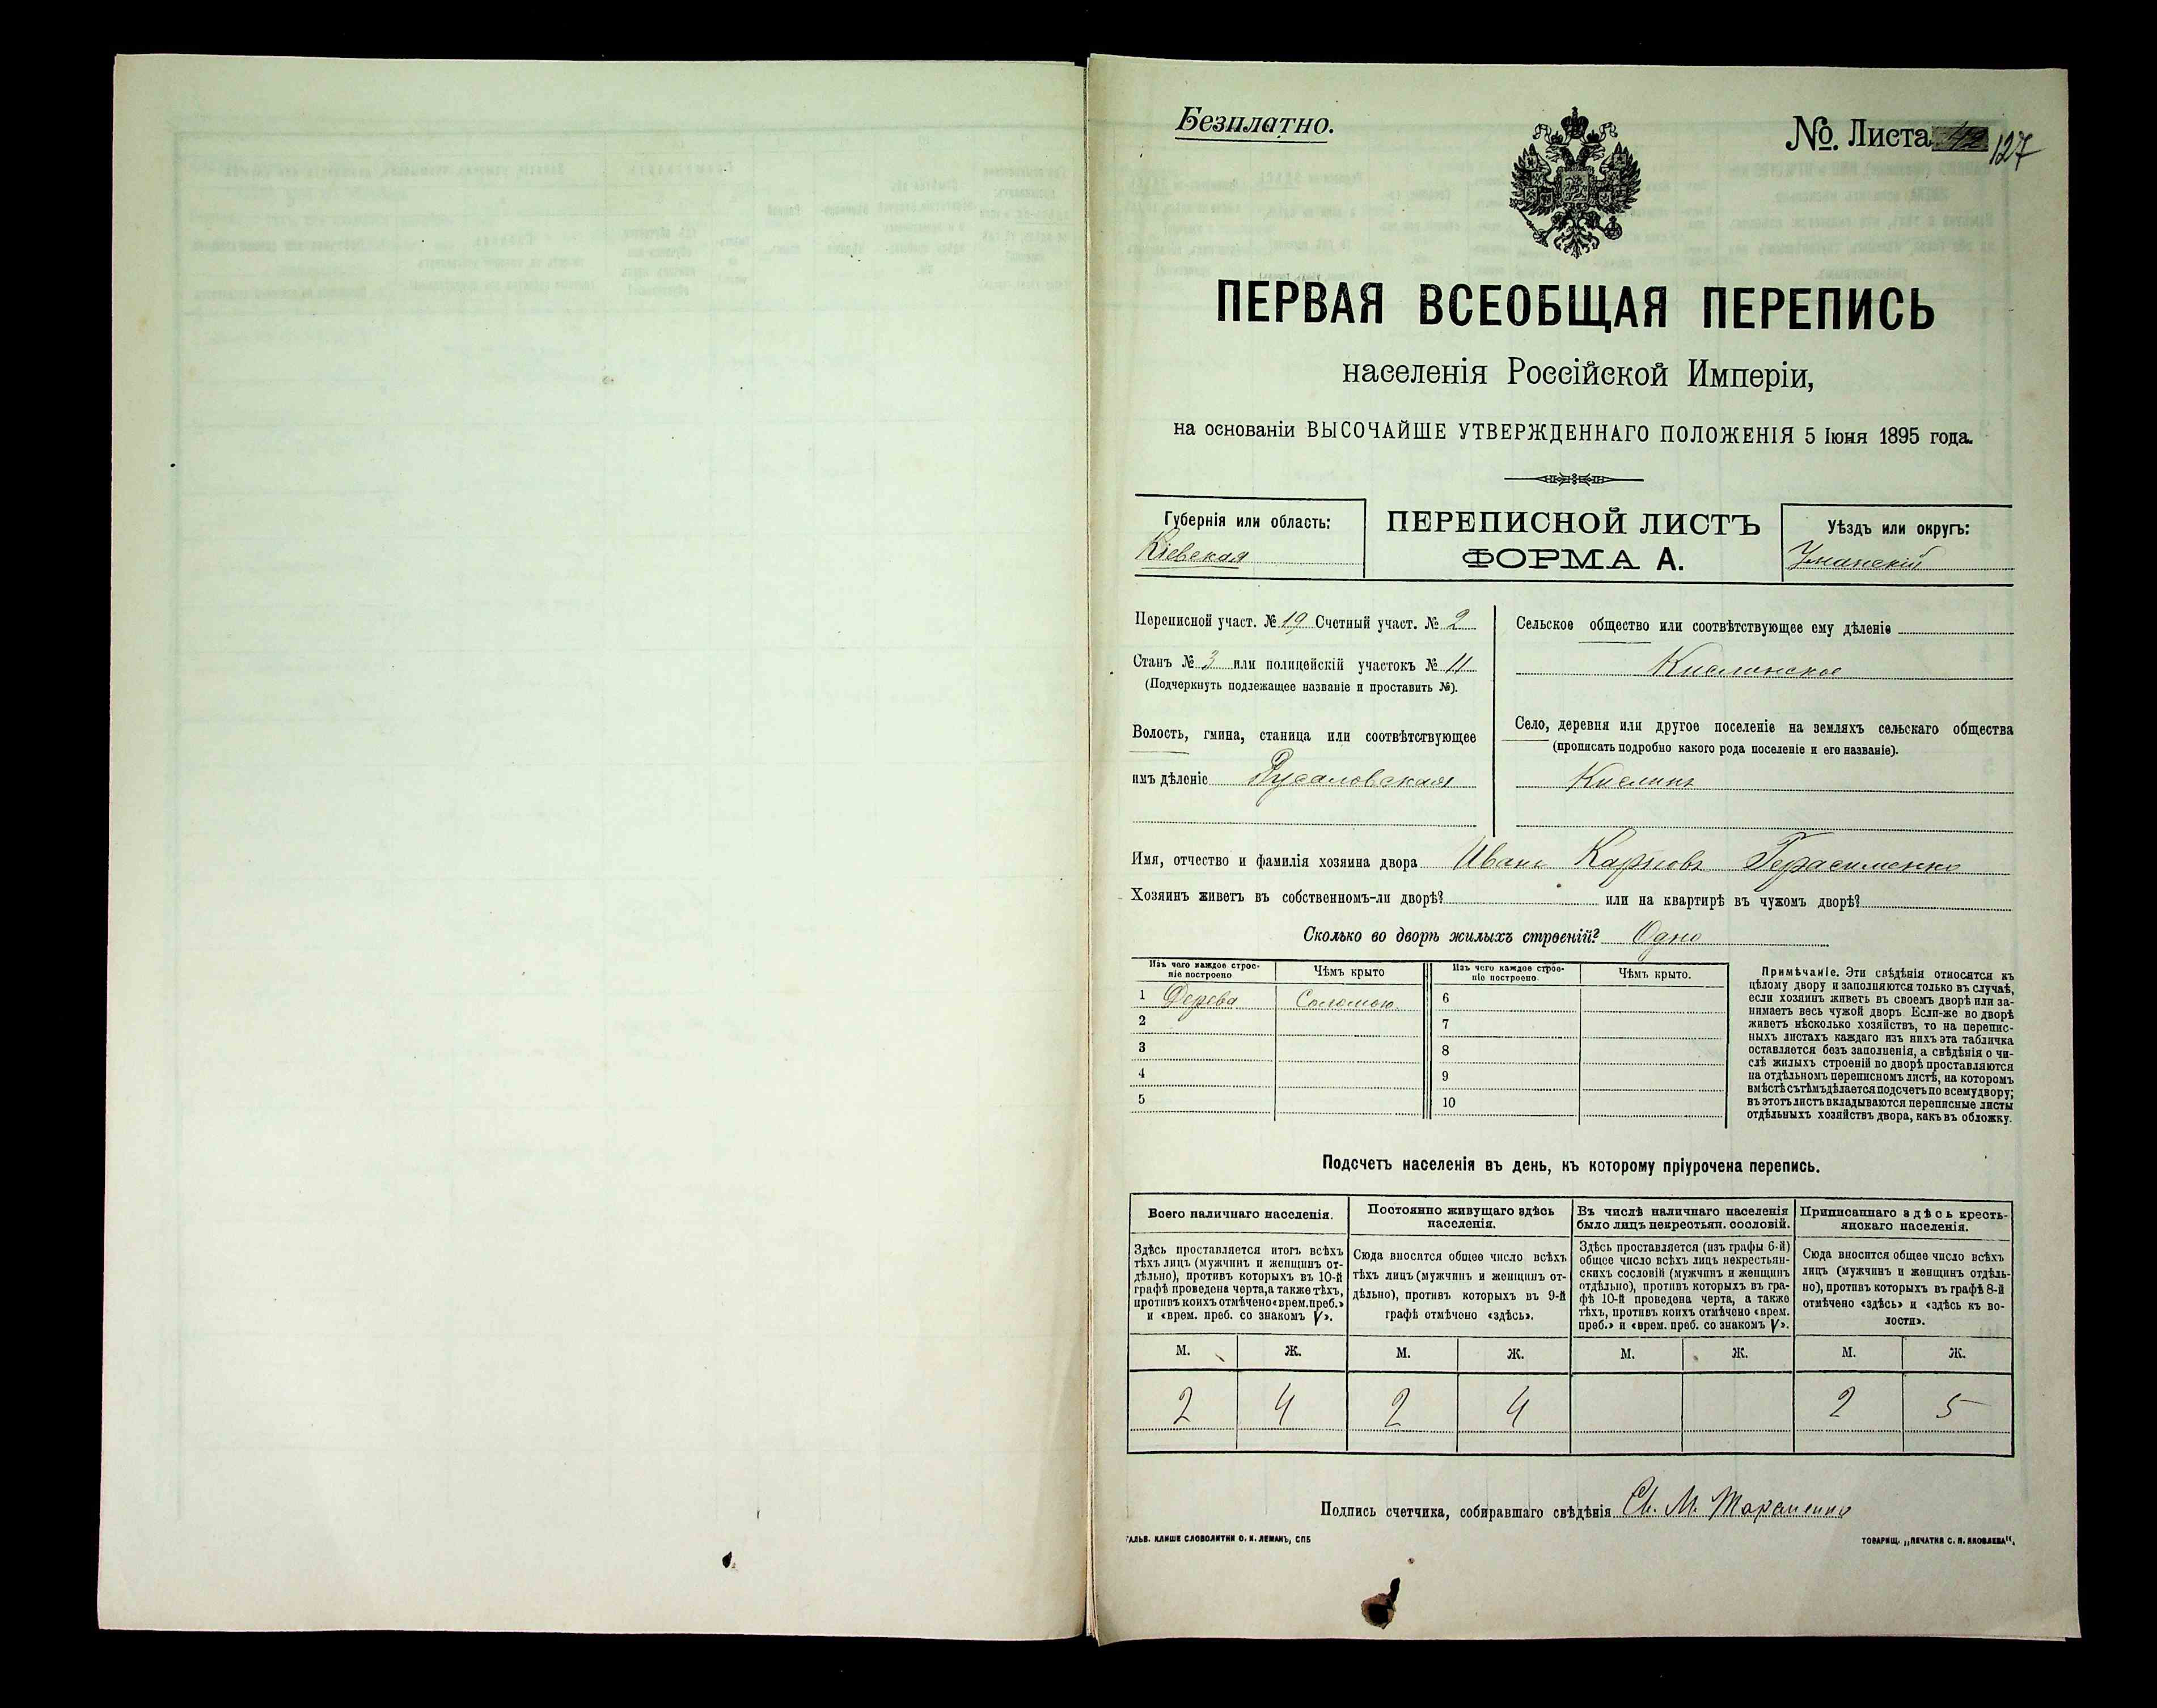 Безплатно.
№. Листа 42 127
ПЕРВАЯ ВСЕОБЩАЯ ПЕРЕПИСЬ
населенія Россійской Имперіи,
на основаніи ВЫСОЧАЙШЕ УТВЕРЖДЕННАГО ПОЛОЖЕНІЯ 5 Іюня 1895 года.
Губернія или область:
Кіевская
ПЕРЕПИСНОЙ ЛИСТЪ
ФОРМА А.
Уѣздъ или округъ:
Уманскій
Переписной участ. № 19 Счетный участ. № 2
Станъ № 3 или полицейскій участокъ № 11
(Подчеркнуть подлежащее названіе и проставить №).
Волость, гмина, станица или соотвѣтствующее
имъ дѣленіе Русаловская
Сельское общество или соотвѣтствующее ему дѣленіе
Кислинское
Село, деревня или другое поселеніе на земляхъ сельскаго общества
(прописать подробно какого рода поселеніе и его названіе).
Кислинъ
Имя, отчество и фамилія хозяина двора Иванъ Карповъ Герасименко
Хозяинъ живетъ въ собственномъ-ли дворѣ? или на квартирѣ въ чужомъ дворѣ?
Сколько во дворѣ жилыхъ строеній? Одно
Изъ чего каждое строе-
ніе построено
Чѣмъ крыто
Изъ чего каждое строе-
ніе построено
Чѣмъ крыто.
1 Дерева Соломою 6
2 7
3 8
4 9
5 10
Примѣчаніе. Эти свѣдѣнія относятся къ
цѣлому двору и заполняются только въ случаѣ,
если хозяинъ живетъ въ своемъ дворѣ или за-
нимаетъ весь чужой дворъ. Если-же во дворѣ
живетъ нѣсколько хозяйствъ, то на перепис-
ныхъ листахъ каждаго изъ нихъ эта табличка
оставляется безъ заполненія, а свѣдѣнія о чи-
слѣ жилыхъ строеній во дворѣ проставляются
на отдѣльномъ переписномъ листѣ, на которомъ
вмѣстѣ съ тѣмъ дѣлается подсчетъ по всему двору;
въ этотъ листъ вкладываются переписные листы
отдѣльныхъ хозяйствъ двора, какъ въ обложку.
Подсчетъ населенія въ день, къ которому пріурочена перепись.
Всего наличнаго населенія.
Здѣсь проставляется итогъ всѣхъ
тѣхъ лицъ (мужчинъ и женщинъ от-
дѣльно), противъ которыхъ въ 10-й
графѣ проведена черта, а также тѣхъ,
противъ коихъ отмѣчено «врем. преб.»
и «врем. преб. со знакомъ V».
Постоянно живущаго здѣсь
населенія.
Сюда вносится общее число всѣхъ
тѣхъ лицъ (мужчинъ и женщинъ от-
дѣльно), противъ которыхъ въ 9-й
графѣ отмѣчено «здѣсь».
Въ числѣ наличнаго населенія
было лицъ некрестьян. сословій.
Здѣсь проставляется (изъ графы 6-й)
общее число всѣхъ лицъ некрестьян-
скихъ сословій (мужчинъ и женщинъ
отдѣльно), противъ которыхъ въ гра-
фѣ 10-й проведена черта, а также
тѣхъ, противъ коихъ отмѣчено «врем.
преб.» и «врем. преб. со знакомъ V».
Приписаннаго здѣсь кресть-
янскаго населенія.
Сюда вносится общее число всѣхъ
лицъ (мужчинъ и женщинъ отдѣль-
но), противъ которыхъ въ графѣ 8-й
отмѣчено «здѣсь» и «здѣсь къ во-
лости».
М. Ж. М. Ж. М. Ж. М. Ж.
2 4 2 4 2 5
Подпись счетчика, собиравшаго свѣдѣнія Св. М. Тараненко
ГАЛЬВ. КЛИШЕ СЛОВОЛИТНИ О. И. ЛЕМАНЪ, СПБ
ТОВАРИЩ. „ПЕЧАТНЯ С. П. ЯКОВЛЕВА“.